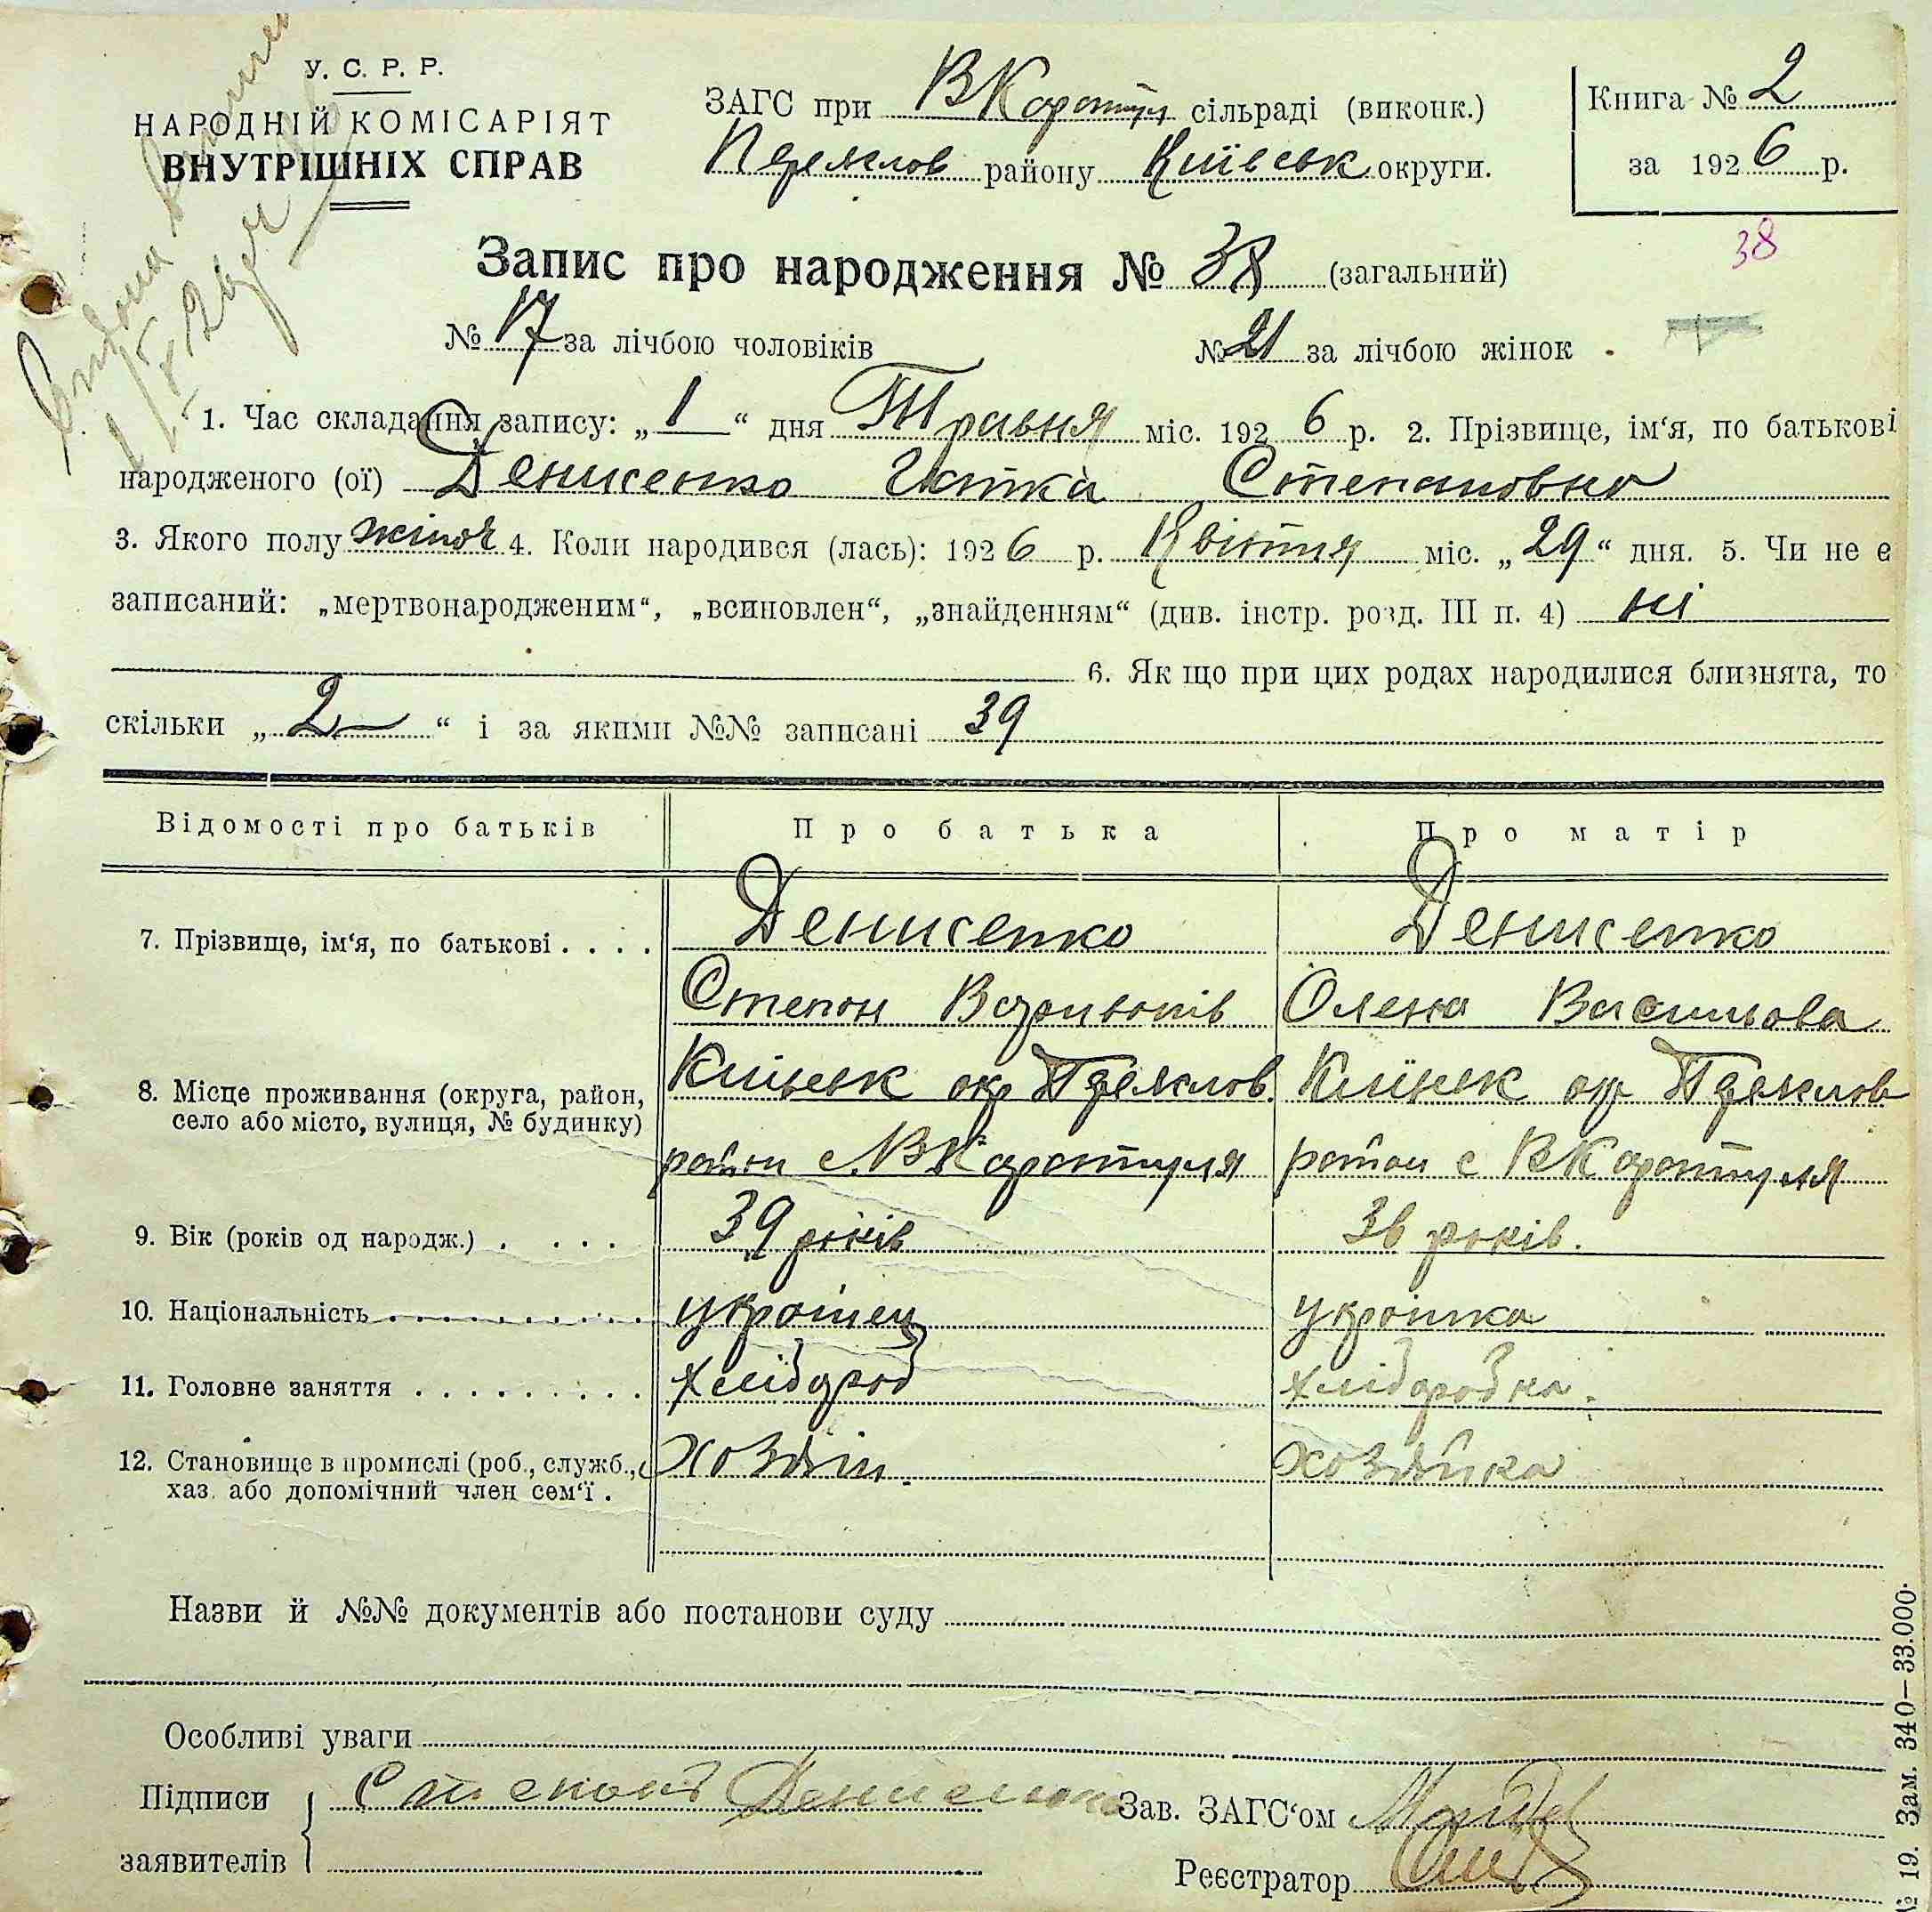 У. С. Р. Р.
НАРОДНІЙ КОМІСАРІЯТ
ВНУТРІШНІХ СПРАВ
ЗАГС при ВКаратул сільраді (виконк.)
Переяслов району Київськ округи.
Книга № 2
за 1926 р.
38
Запис про народження № 38 (загальний)
№ 17 за лічбою чоловіків № 21 за лічбою жінок
1. Час складання запису: „1“ дня Травня міс. 1926 р. 2. Прізвище, ім‘я, по батькові
народженого (ої) Денисенко Степановна
3. Якого полу жіноч 4. Коли народився (лась): 1926 р. Квітня міс. „29“ дня. 5. Чи не є
записаний: „мертвонародженим“, „всиновлен“, „знайденням“ (див. інстр. розд. III п. 4) ні
6. Як що при цих родах народилися близнята, то
скільки „2“ і за якими №№ записані 39
Відомості про батьків Про батька Про матір
7. Прізвище, ім‘я, по батькові . . . . Денисенко Денисенко
Степан Олена Васильова
8. Місце проживання (округа, район, Київськ ок Переяслов Київськ ок Переяслов
село або місто, вулиця, № будинку) район с. ВКаратуля район с ВКаратуля
9. Вік (років од народж.) . . . . 39 років 36 років.
10. Національність українец українка
11. Головне заняття . . . . . . . . . . хлібороб хліборобка.
12. Становище в промислі (роб., служб., хозяін. хозяйка
хаз. або допомічний член сем‘ї .
Назви й №№ документів або постанови суду
Особливі уваги
Підписи Денисенко Зав. ЗАГС‘ом
заявителів Реєстратор
№ 19. Зам. 340—33.000.